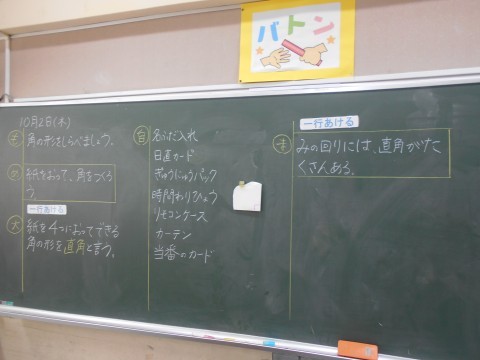 バトン
10月2日(木)
角の形をしらべましょう。
め
紙をおって、角をつくろ
う
一行あける
大
紙を4つにおってできる
角の形を直角と言う。
自
名ふだ入れ
日直カード
ぎゅうにゅうパック
時間わりひょう
リモコンケース
カーテン
当番のカード
一行あける
ま
みの回りには、直角がた
くさんある。